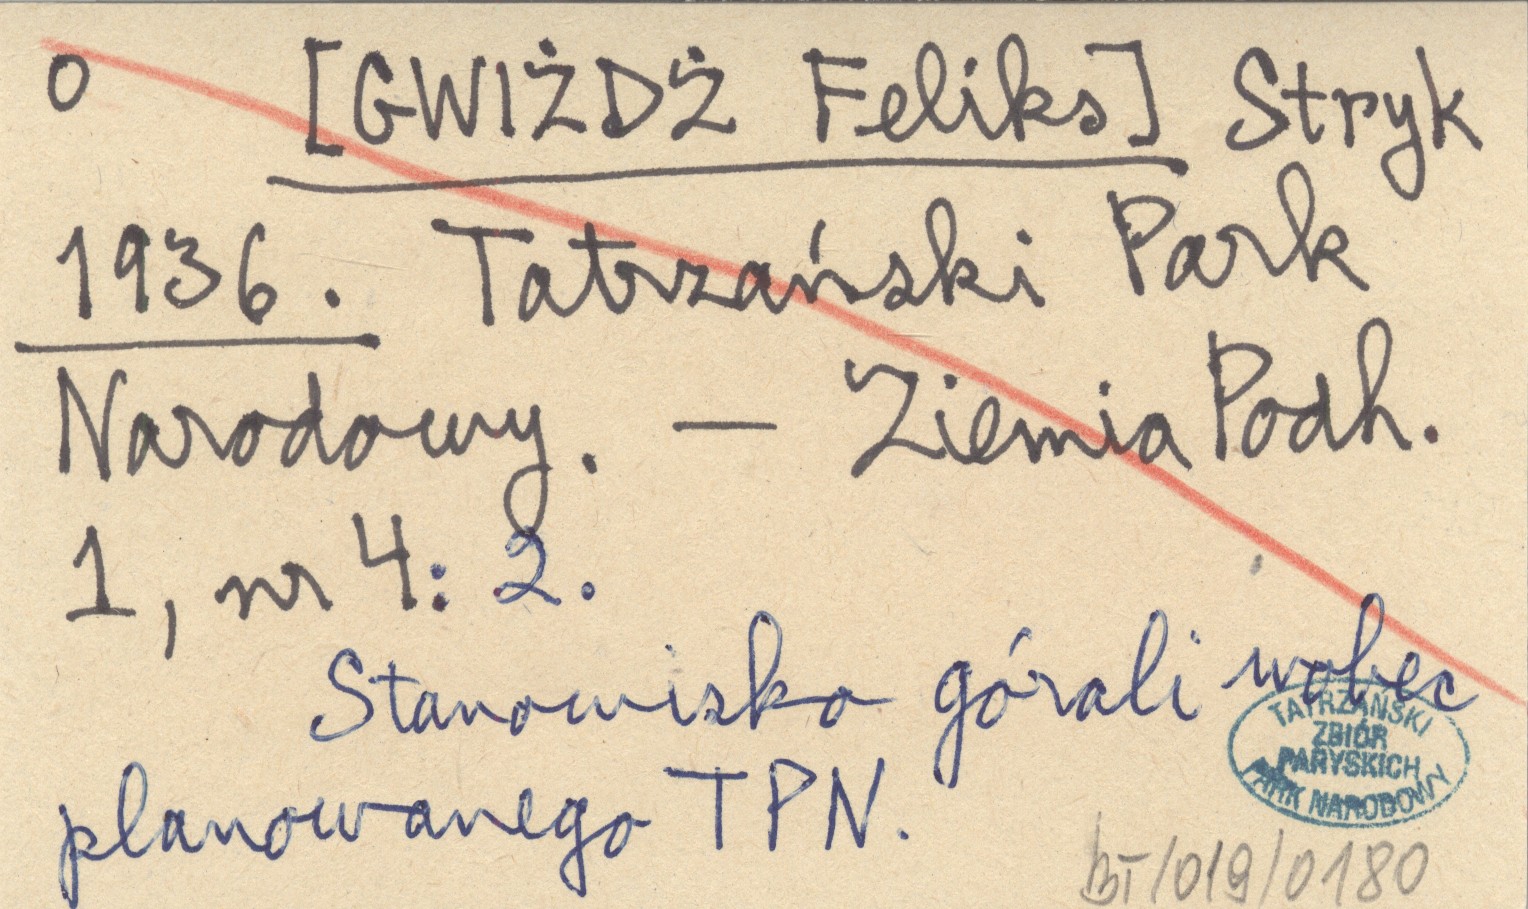 o [GWIŻDŻ Feliks] Stryk
1936. Tatrzański Park
Narodowy. — Ziemia Podh.
1, nr 4: 2.
Stanowisko górali wobec
planowanego TPN.
TATRZAŃSKI
ZBIÓR
PARYSKICH
PARK NARODOWY
BT/019/0180